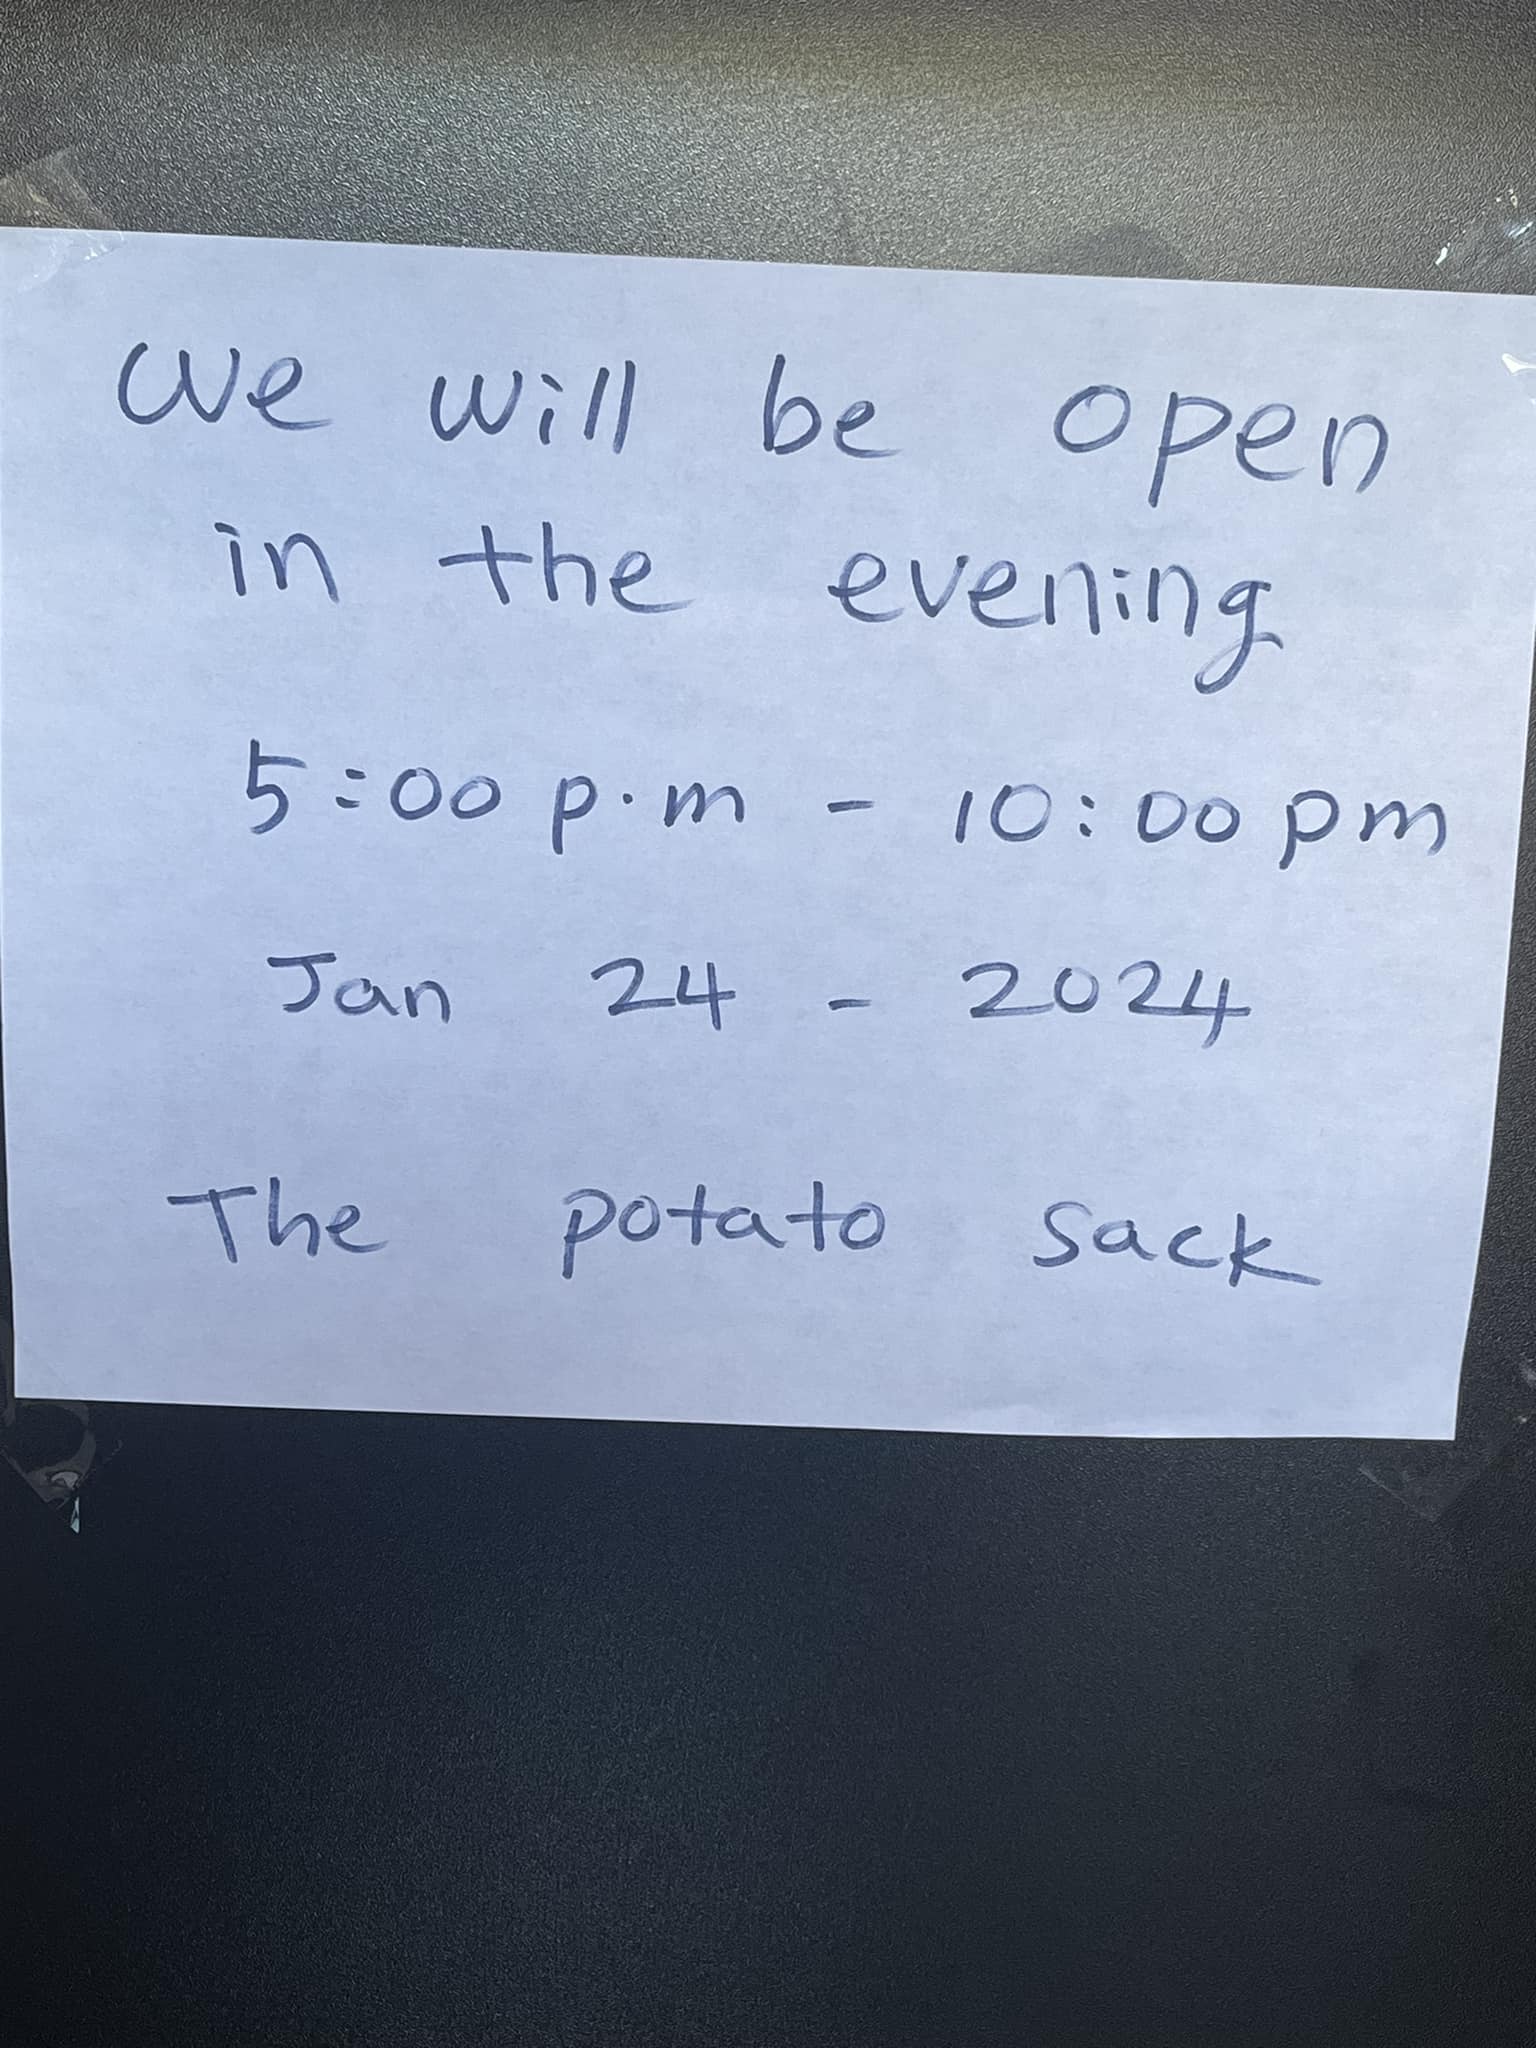 We will be open
in the evening
5:00 p.m - 10:00 pm
Jan 24 - 2024
The potato sack